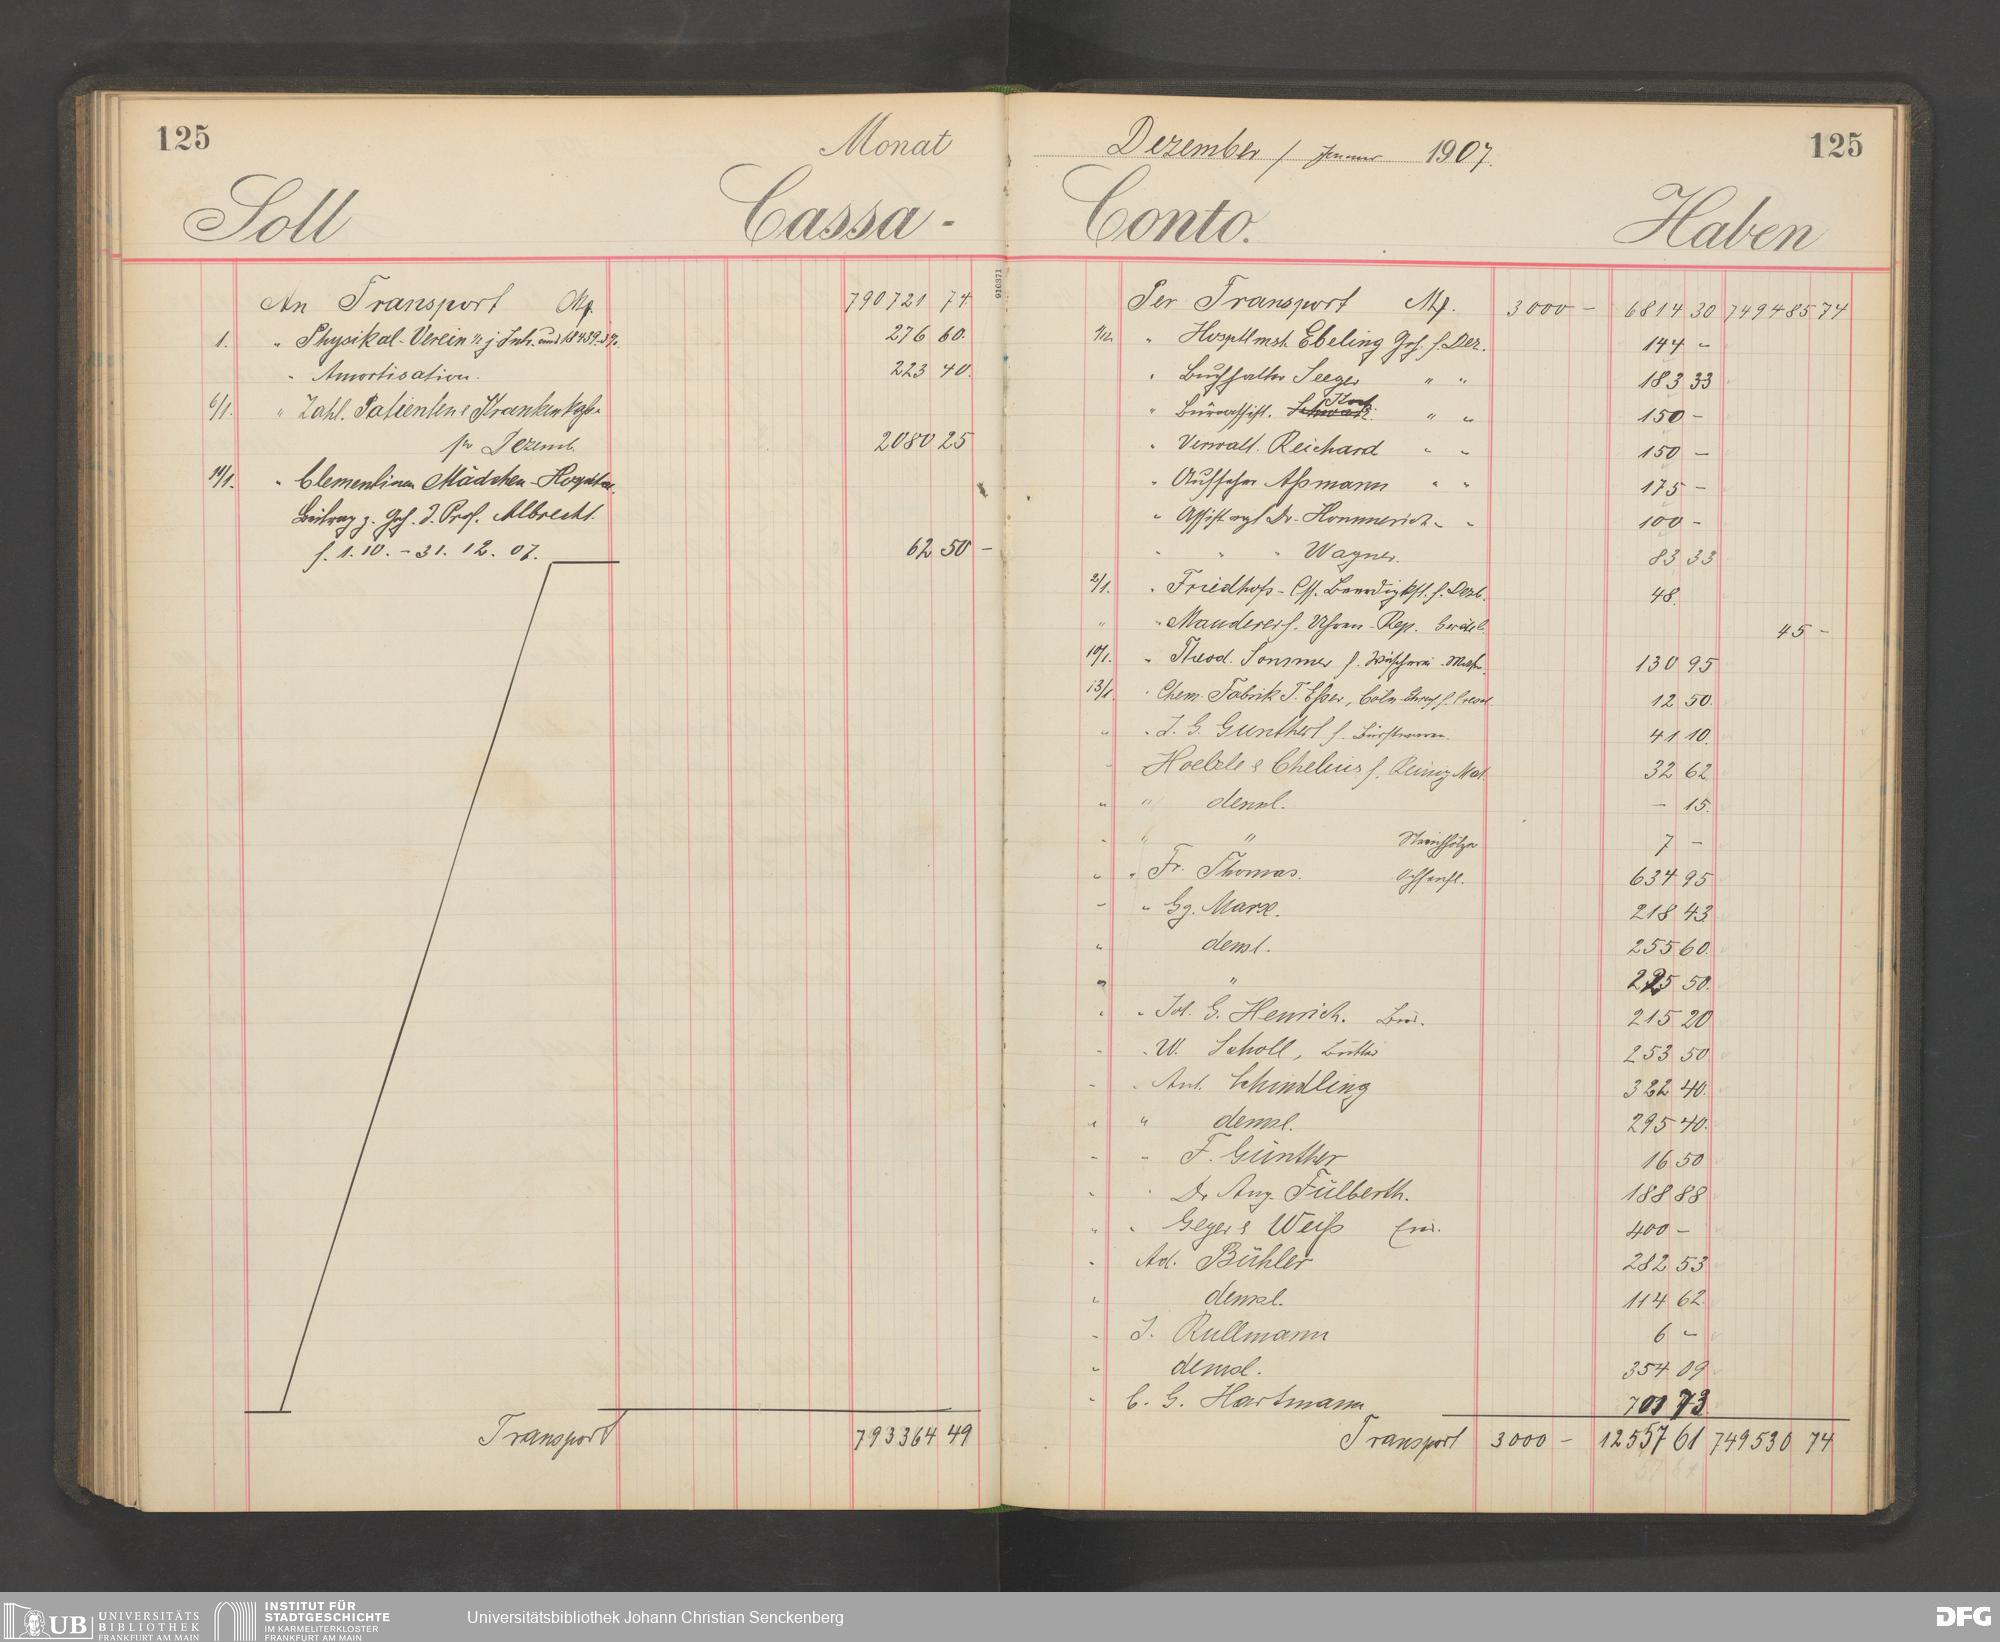 125
Monat
Soll
Cassa-
An Transport M. 790721 74
1. " Physikal-Verein 276 60.
" Amortisation. 223 40.
6/1. " Zahl. Patienten &
pr Dezemb. 2080 25
14/1. " Clementinen Mädchen-Hospital
Beitrag z. Geh. d. Prof. Albrecht
f. 1.10. - 31.12.07. 62 50 -
Transport 793364 49
910371
Dezember / 1907.
125
Conto.
Haben
Per Transport M. 3000 - 6814 30 749485 74
" Ebeling Geh. f. Dez. 144 -
" Buchhalter Seeger " " 183 33
" Büroassist. " " 150 -
" Verwalt. Reichard " " 150 -
" Aufseher Aßmann " " 175 -
" Assistarzt Dr. Hommerich " " 100 -
" " " Wagner. 83 33
2/1. " Friedhofs- f. Dezb. 48.
" " Manderer f. Uhren-Rep. 45 -
10/1. " Theod. Sommer f. 130 95
13/1. " Chem. Fabrik T. Eßer, Cöln 12 50.
" " J. G. Gunthert f. Bürstwaren. 41 10.
" Hoelzle & Chelius f. Reinig. Mat. 32 62
" " demsl. - 15.
" " " Streichhölzer 7 -
" " Fr. Thomas. Ochsenfl. 634 95
" " Gg. Marx. 218 43
" demsl. 255 60.
" " 225 50.
" " Joh. G. Henrich. 215 20
" " W. Scholl, Butter 253 50
" " Ant. Schindling 322 40.
" " demsl. 295 40.
" " F. Günther 16 50
" " Dr Aug. Fülberth. 188 88
" " Geyer & Weiß 400 -
" Ad. Bühler 282 53
" demsl. 114 62
" J. Rullmann 6 -
" demsl. 354 09
" C. G. Hartmann 701 73
Transport 3000 - 12557 61 749530 74
UB UNIVERSITÄTS
BIBLIOTHEK
FRANKFURT AM MAIN
INSTITUT FÜR
STADTGESCHICHTE
IM KARMELITERKLOSTER
FRANKFURT AM MAIN
Universitätsbibliothek Johann Christian Senckenberg
DFG